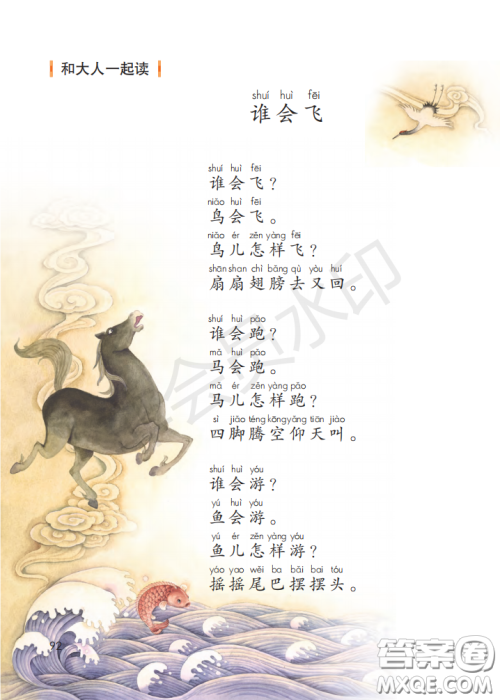 和大人一起读
shuí huì fēi
谁会飞
shuí huì fēi
谁会飞？
niǎo huì fēi
鸟会飞。
niǎo ér zěn yàng fēi
鸟儿怎样飞？
shān shan chì bǎng qù yòu huí
扇扇翅膀去又回。
shuí huì pǎo
谁会跑？
mǎ huì pǎo
马会跑。
mǎ ér zěn yàng pǎo
马儿怎样跑？
sì jiǎo téng kōng yǎng tiān jiào
四脚腾空仰天叫。
shuí huì yóu
谁会游？
yú huì yóu
鱼会游。
yú ér zěn yàng yóu
鱼儿怎样游？
yáo yao wěi ba bǎi bai tóu
摇摇尾巴摆摆头。
92
会员水印
答案圈
MXQE.COM